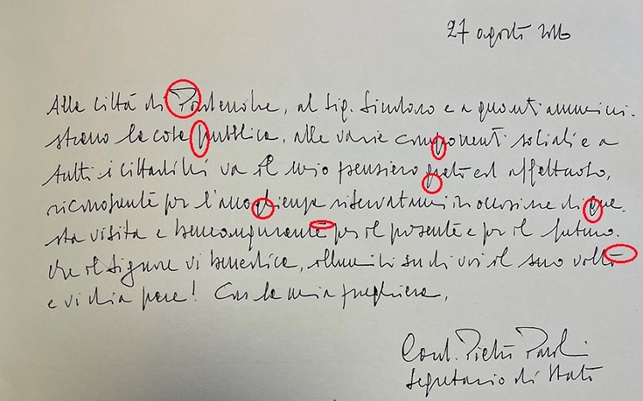 27 agosto 2016
Alla città di Pordenone, al Sig. Sindaco e a quanti ammini-
strano la cosa pubblica, alle varie componenti sociali e a
tutti i cittadini va il mio pensiero grato ed affettuoso,
riconoscente per l'accoglienza riservatami in occasione di que-
sta visita e beneaugurante per il presente e per il futuro.
Che il Signore vi benedica, illumini su di voi il suo volto
e vi dia pace! Con la mia preghiera,
Card. Pietro Parolin
Segretario di Stato